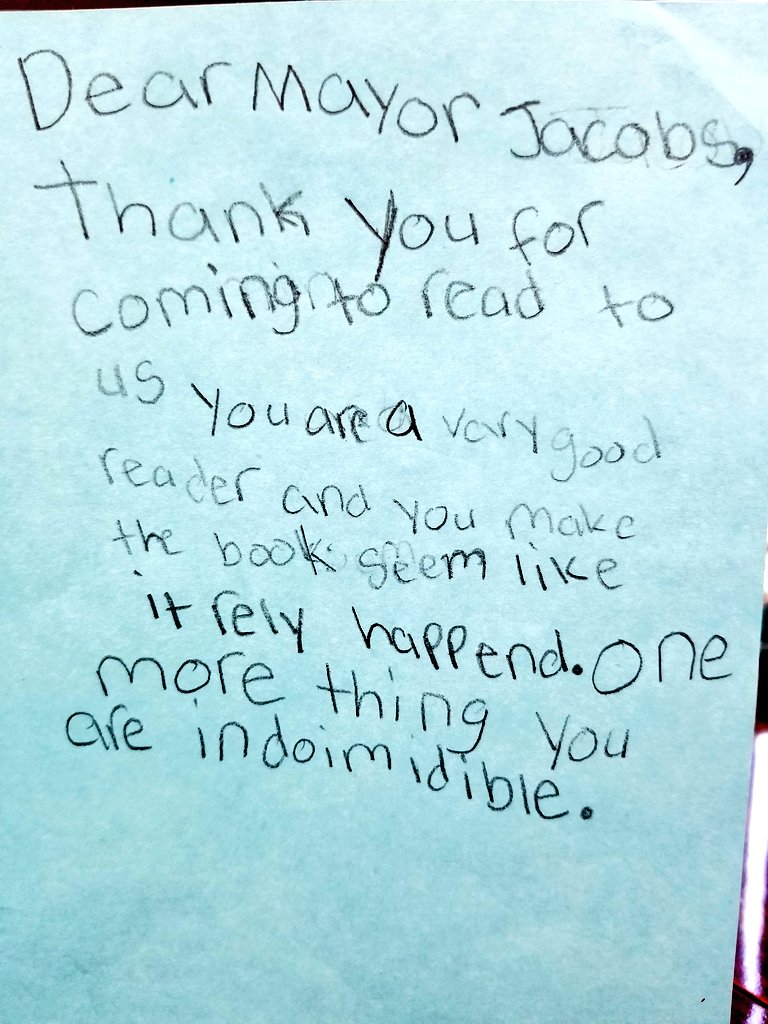 Dear Mayor Jacobs,
Thank you for
coming to read to
us you are a vary good
reader and you make
the book seem like
it rely happend. One
more thing you
are indoimidible.